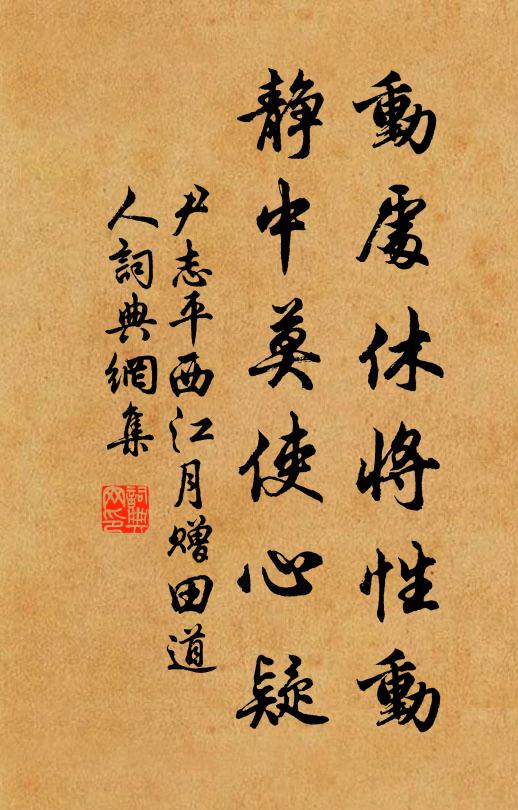 動處休將性動
静中莫使心疑
尹志平西江月赠田道
人詞典網集
詞典
网印